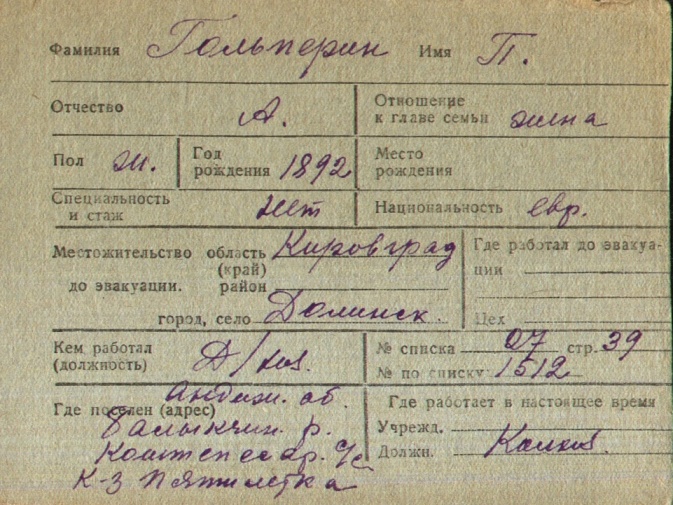 Фамилия Гольперин Имя П.
Отчество А. Отношение к главе семьи жена
Пол ж. Год рождения 1892 Место рождения
Специальность и стаж нет Национальность евр.
Местожительство область (край) Кировград
до эвакуации. район
город, село Долинск.
Где работал до эвакуации
Цех
Кем работал (должность) Д/хоз.
№ списка 07 стр. 39
№ по списку 1512
Где поселен (адрес) Андиж. об.
Балыкчин. р.
с/с
К-з Пятилетка
Где работает в настоящее время
Учрежд.
Должн. Колхоз